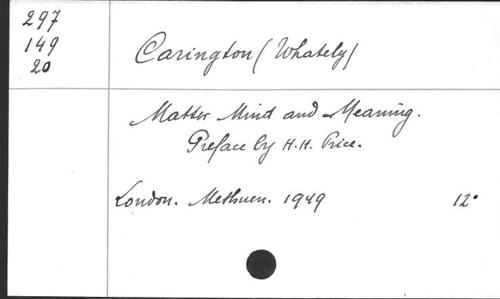 297
149
20
Carington (Whately)
Matter Mind and Meaning.
Preface by H.H. Price.
London. Methuen. 1949 12°